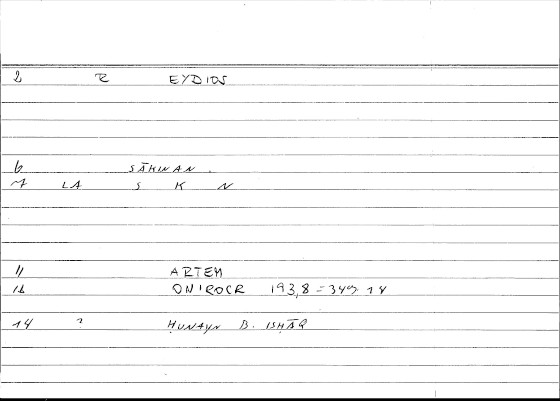 2 R EYDIOS
6 SĀKINAN.
7 LA S K N
11 ARTEM
12 ONIROCR 193,8 = 349 14
14 ? ḤUNAYN B. ISḤĀQ